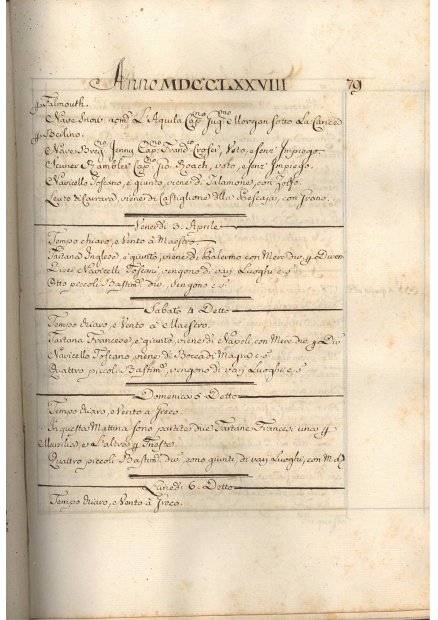 Anno MDCCLXXVIII 79
p Falmouth.
Nave Snow nom.a L'Aquila Cap.no Jug.mo Morgan sotto La Canced
p Berlino.
Nave Breg.o Jenny Cap.no Fran.do Croser, Voto, e senz' Impiego.
Scuner Rambler Cap.no Gio. Roach, voto, e senz' Impiego.
Navicello Toscano, è giunto, viene di Talamone, con Zolfo.
Leuto di Carrara, viene di Castiglione della Pescaja, con Grano.
Venerdi 3. Aprile
Tempo chiaro, e Vento à Maestro.
Tartana Inglese è giunto, viene di Palermo con Merc. div. p Diver
Dieci Navicelli Toscani, vengono di varj Luoghi e s
Otto piccoli Bastim.ti div. vengono e s
Sabato 4 Detto
Tempo chiaro, e Vento à Maestro.
Tartana Francese, è giunto, viene di Napoli, con Merc. div. p Div
Navicello Toscano, viene di Bocca di Magra e s
Quattro piccoli Bastim.ti vengono di varj Luoghi e s
Domenica 5 Detto
Tempo chiaro, e Vento a Greco.
In questa Mattina sono partite due Tartane Francesi una p
Marsilia, e L'altra p Trieste.
Quattro piccoli Bastim.ti div. sono giunti, di varj Luoghi, con M.D
Lunedi 6. Detto
Tempo chiaro, e Vento à Greco.